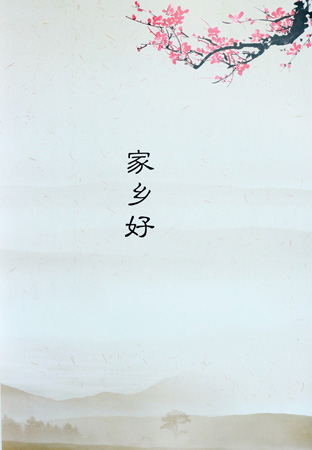 家乡好